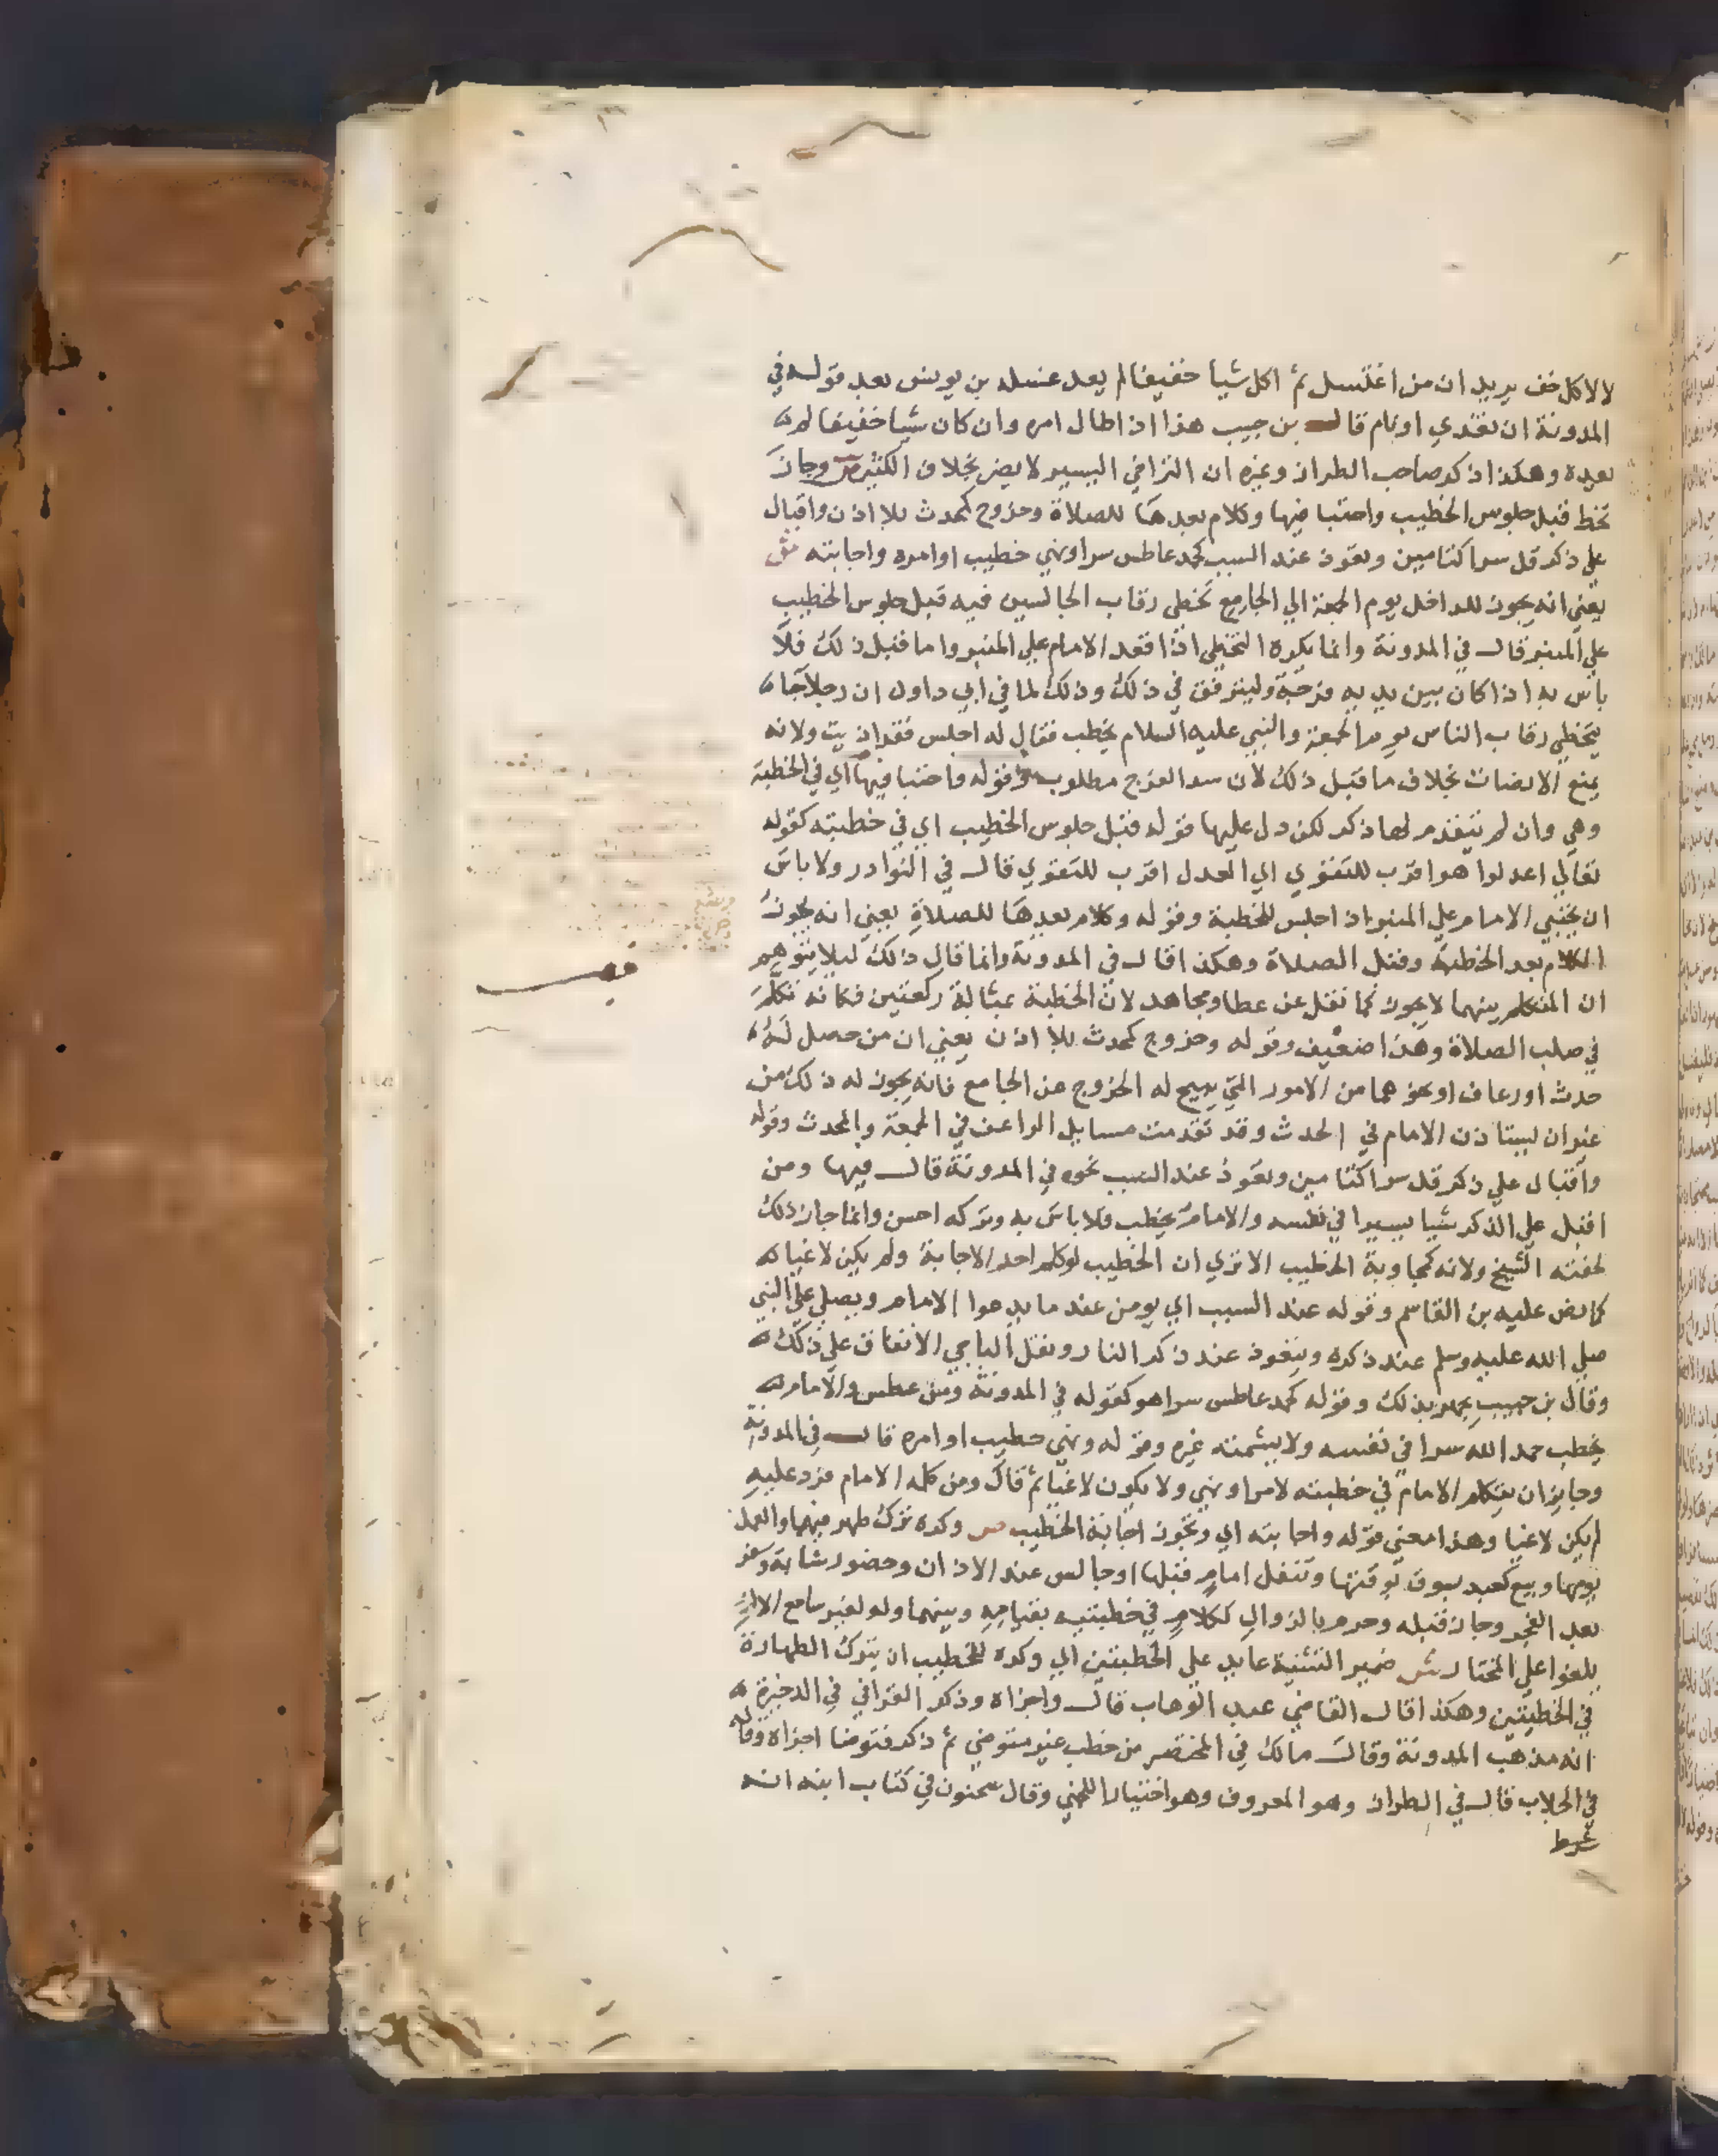 لا لاكل خف يريد ان من اغتسل ثم اكل شيا خفيفا لم يعد غسله بن يونس بعد قوله في
المدونة ان تغدي او نام قال بن حبيب هذا اذا طال امره وان كان شيا خفيفا لم
يعده وهكذا ذكر صاحب الطراز وغيره ان التراخي اليسير لا يضر بخلاف الكثير ص وجاز
تخط قبل جلوس الخطيب واحتبا فيها وكلام بعدها للصلاة وخروج كمحدث بلا اذن واقبال
علي ذكر قل سرا كتامين وتعوذ عند السبب كحمد عاطس سرا ونهي خطيب او امره واجابته ش
يعني انه يجوز للداخل يوم الجمعة الي الجامع تخطي رقاب الجالسين فيه قبل جلوس الخطيب
علي المنبر قال في المدونة وانما يكره التخطي اذا قعد الامام علي المنبر واما قبل ذلك فلا
باس به اذا كان بين يديه فرجة وليترفق في ذلك وذلك لما في ابي داود ان رجلا جا
يتخطي رقاب الناس يوم الجمعة والنبي عليه السلام يخطب فقال له اجلس فقد اذيت ولانه
يمنع الانصات بخلاف ما قبل ذلك لان سد الفرج مطلوب وقوله واحتبا فيها اي في الخطبة
وهي وان لم يتقدم لها ذكر لكن دل عليها قوله قبل جلوس الخطيب اي في خطبته كقوله
تعالي اعدلوا هو اقرب للتقوي اي العدل اقرب للتقوي قال في النوادر ولا باس
ان يحتبي الامام علي المنبر اذا جلس للخطبة وقوله وكلام بعدها للصلاة يعني انه يجوز
الكلام بعد الخطبة وقبل الصلاة وهكذا قال في المدونة وانما قال ذلك ليلا يتوهم
ان المتكلم بينهما لا يجوز كما نقل عن عطا ومجاهد لان الخطبة بمثابة ركعتين فكانه تكلم
في صلب الصلاة وهذا ضعيف وقوله وخروج كمحدث بلا اذن يعني ان من حصل له
حدث او رعاف او نحوهما من الامور التي تبيح له الخروج من الجامع فانه يجوز له ذلك من
غير ان يستاذن الامام في الحدث وقد تقدمت مسايل الراعف في الجمعة والمحدث وقوله
واقبال علي ذكر قل سرا كتامين وتعوذ عند السبب نحوه في المدونة قال فيها ومن
اقبل علي الذكر شيا يسيرا في نفسه والامام يخطب فلا باس به وتركه احسن وانما جاز ذلك
لخفته الشيخ ولانه كمجاوبة الخطيب الا تري ان الخطيب لو كلم احدا لاجابه ولم يكن لاغيا
كما نص عليه بن القاسم وقوله عند السبب اي يومن عند ما يدعوا الامام ويصلي علي النبي
صلي الله عليه وسلم عند ذكره ويتعوذ عند ذكر النار ونقل الباجي الاتفاق علي ذلك
وقال بن حبيب يجهر بذلك وقوله كحمد عاطس سرا هو كقوله في المدونة ومن عطس والامام
يخطب حمد الله سرا في نفسه ولا يشمته غيره وقوله ونهي خطيب او امره قال في المدونة
وجايز ان يتكلم الامام في خطبته لامر او نهي ولا يكون لاغيا ثم قال ومن كلمه الامام فرد عليه
لم يكن لاغيا وهذا معني قوله واجابته اي وتجوز اجابة الخطيب ص وكره ترك طهر فيهما والعمل
يومها وبيع كعبد بسوق توقتها وتنفل امام قبلها او جالس عند الاذان وحضور شابة وسفر
بعد الفجر وجاز قبله وحرم بالزوال ككلام في خطبتيه بقيامه وبينهما ولو لغير سامع الا ان
يلغوا علي المختار ش ضمير التثنية عايد علي الخطبتين اي وكره للخطيب ان يترك الطهارة
في الخطبتين وهكذا قال القاضي عبد الوهاب قال واجزاه وذكر القرافي في الذخيرة
انه مذهب المدونة وقال مالك في المختصر من خطب غير متوضي ثم ذكر فتوضا اجزاه وقاله
في الجلاب قال في الطراز وهو المعروف وهو اختيار اللخمي وقال سحنون في كتاب ابنه انه
شرط
قف